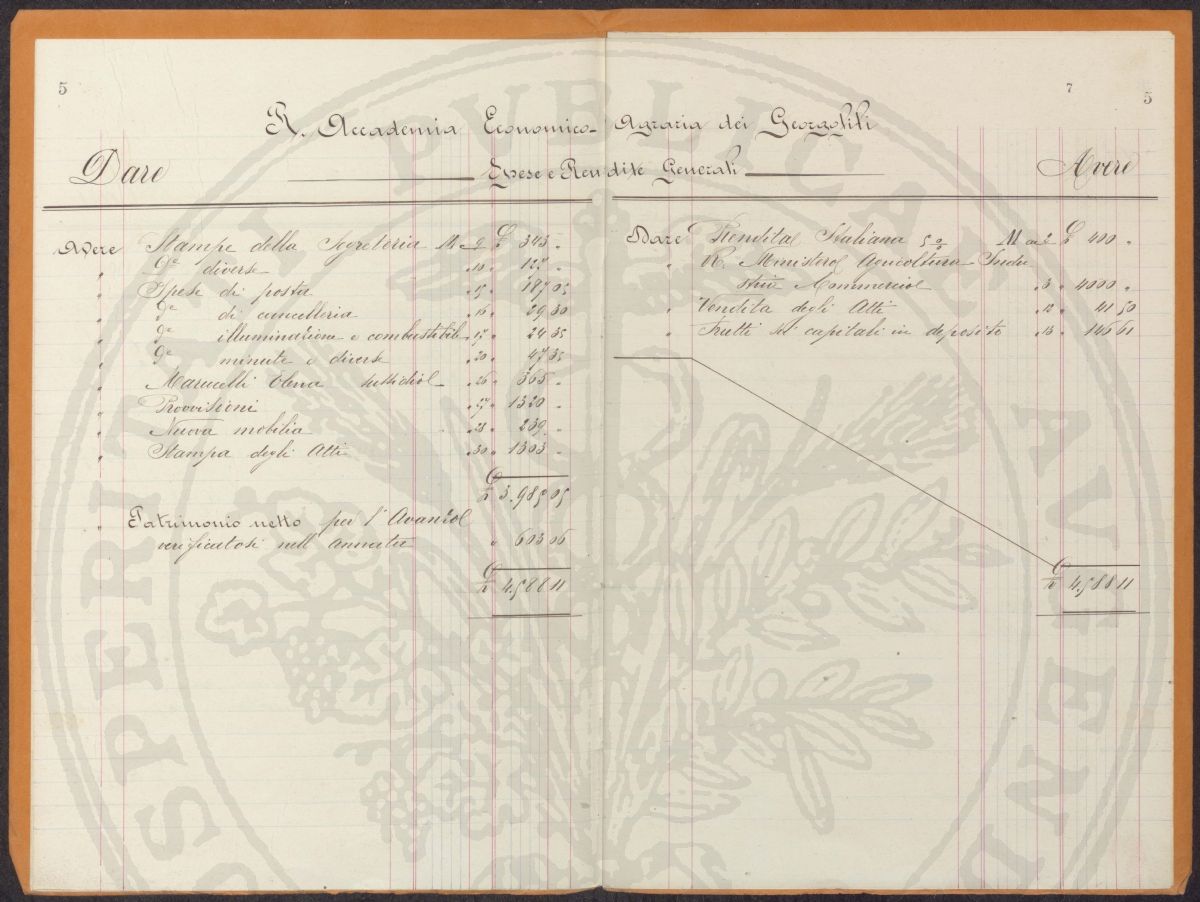 5
7
5
R. Accademia Economico-Agraria dei Georgofili
Dare
Spese e Rendite Generali
Avere
Avere Stampe della Segreteria M a 9 £ 343 "
" Dᵉ diverse " 10 " 127 "
" Spese di posta " 15 " 187 05
" Dᵉ di cancelleria " 16 " 29 30
" Dᵉ illuminazione e combustibile " 17 " 24 35
" Dᵉ minute e diverse " 20 " 47 35
" Marucelli Elena sussidio " 26 " 365 "
" Provvisioni " 27 " 1320 "
" Nuova mobilia " 28 " 239 "
" Stampa degli Atti " 30 " 1303 "
£ 3.985 05
" Patrimonio netto per l'Avanzo
verificatosi nell'annata " 603 06
£ 4.588 11
Dare Rendita Italiana 5 % M a 2 £ 400 "
" R. Ministero Agricoltura Indu
strie Commercio " 3 " 4000 "
" Vendita degli Atti " 12 " 41 50
" Frutti di capitali in deposito " 13 " 146 61
£ 4.588 11
SPERITATI PVBLICAE AVGEND